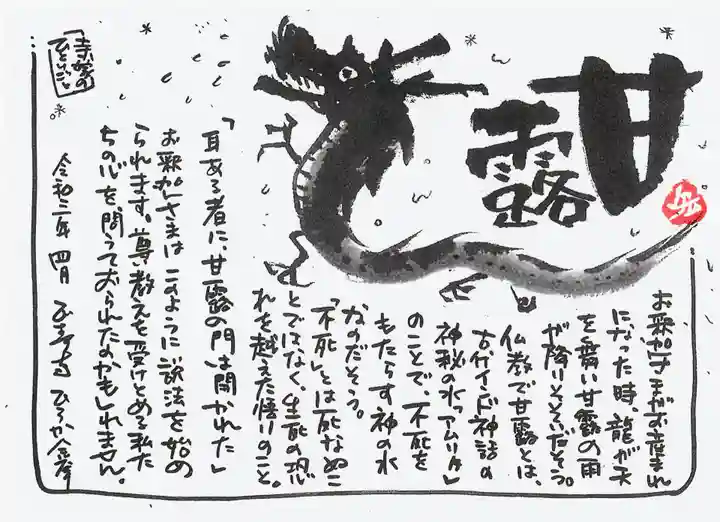 甘露
お釈迦さまがお産まれ
になった時、龍が天
を舞い甘露の雨
が降りそそいだそう。
仏教で甘露とは、
古代インド神話の
神秘の水「アムリタ」
のことで、不死を
もたらす神の水
なのだそう。
「不死」とは死なぬこ
とではなく、生死の恐
れを越えた悟りのこと。
「耳ある者に、甘露の門は開かれた」
お釈迦さまはこのように説法を始め
られます。尊い教えを受けとめる私た
ちの心を、問うておられたのかもしれません。
令和二年 四月
「寺嫁の
ひとりごと」